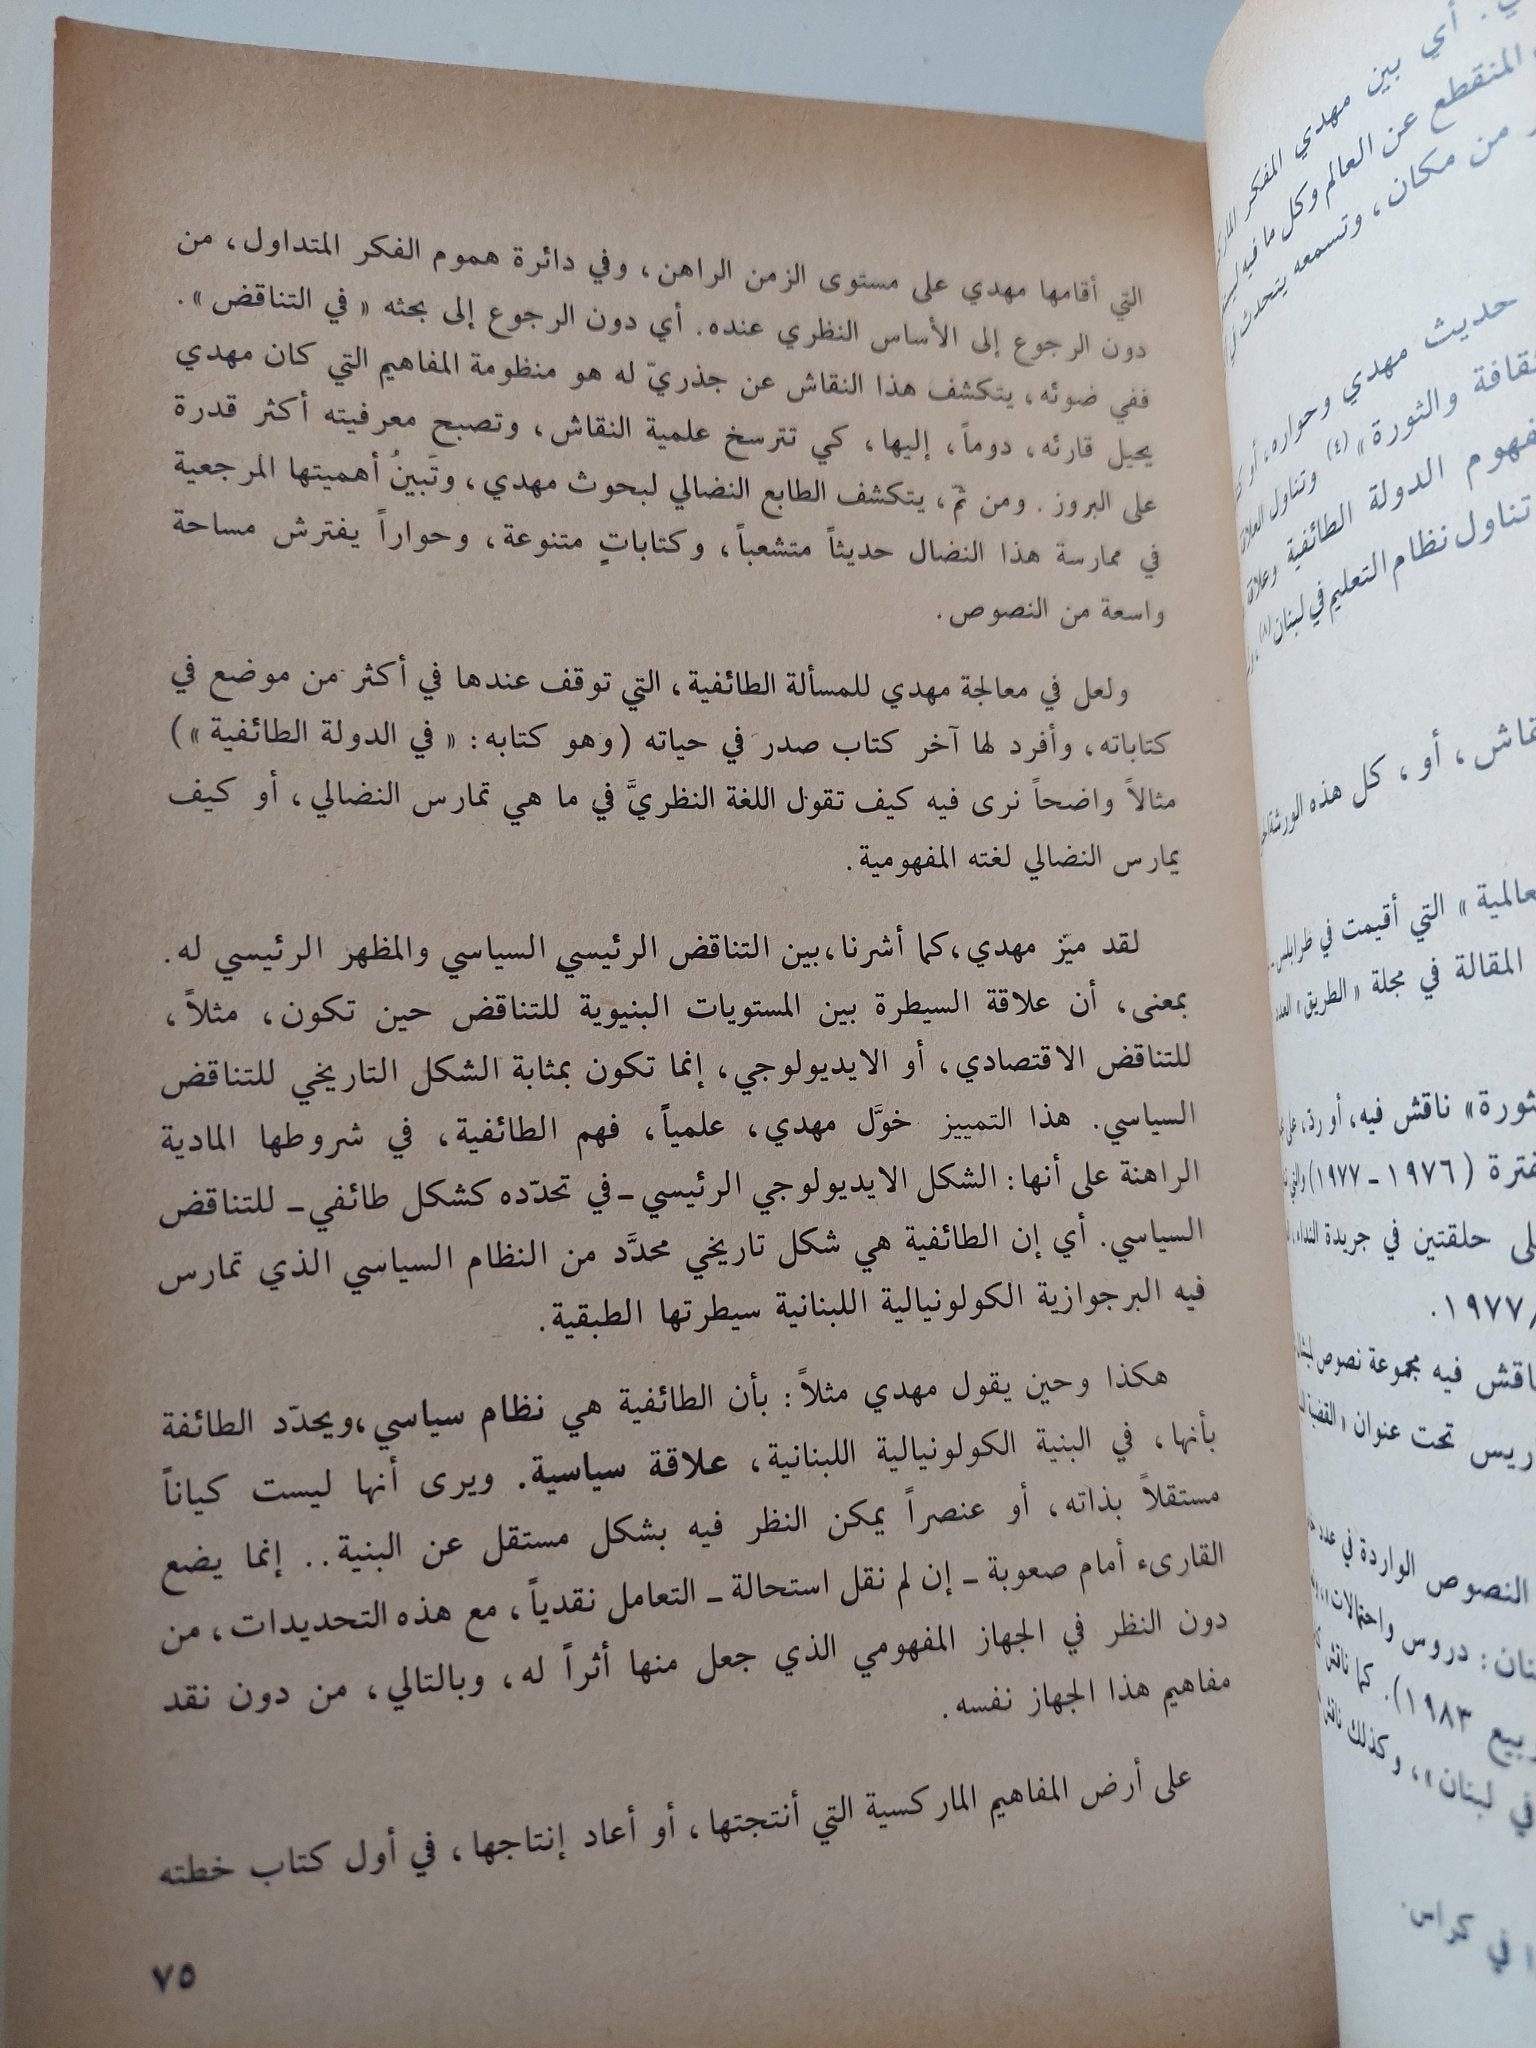 التي أقامها مهدي على مستوى الزمن الراهن، وفي دائرة هموم الفكر المتداول، من
دون الرجوع إلى الأساس النظري عنده. أي دون الرجوع إلى بحثه « في التناقض ».
ففي ضوئه، يتكشف هذا النقاش عن جذريّ له هو منظومة المفاهيم التي كان مهدي
يحيل قارئه، دوماً، إليها، كي تترسخ علمية النقاش، وتصبح معرفيته أكثر قدرة
على البروز. ومن ثمّ، يتكشف الطابع النضالي لبحوث مهدي، وتَبينُ أهميتها المرجعية
في ممارسة هذا النضال حديثاً متشعباً، وكتاباتٍ متنوعة، وحواراً يفترش مساحة
واسعة من النصوص.
ولعل في معالجة مهدي للمسألة الطائفية، التي توقف عندها في أكثر من موضع في
كتاباته، وأفرد لها آخر كتاب صدر في حياته (وهو كتابه: « في الدولة الطائفية »)
مثالاً واضحاً نرى فيه كيف تقول اللغة النظريَّ في ما هي تمارس النضالي، أو كيف
يمارس النضالي لغته المفهومية.
لقد ميّز مهدي، كما أشرنا، بين التناقض الرئيسي السياسي والمظهر الرئيسي له.
بمعنى، أن علاقة السيطرة بين المستويات البنيوية للتناقض حين تكون، مثلاً،
للتناقض الاقتصادي، أو الايديولوجي، إنما تكون بمثابة الشكل التاريخي للتناقض
السياسي. هذا التمييز خوَّل مهدي، علمياً، فهم الطائفية، في شروطها المادية
الراهنة على أنها: الشكل الايديولوجي الرئيسي ـ في تحدّده كشكل طائفي ـ للتناقض
السياسي. أي إن الطائفية هي شكل تاريخي محدَّد من النظام السياسي الذي تمارس
فيه البرجوازية الكولونيالية اللبنانية سيطرتها الطبقية.
هكذا وحين يقول مهدي مثلاً: بأن الطائفية هي نظام سياسي، ويحدّد الطائفة
بأنها، في البنية الكولونيالية اللبنانية، علاقة سياسية. ويرى أنها ليست كياناً
مستقلاً بذاته، أو عنصراً يمكن النظر فيه بشكل مستقل عن البنية.. إنما يضع
القارىء أمام صعوبة ـ إن لم نقل استحالة ـ التعامل نقدياً، مع هذه التحديدات، من
دون النظر في الجهاز المفهومي الذي جعل منها أثراً له، وبالتالي، من دون نقد
مفاهيم هذا الجهاز نفسه.
على أرض المفاهيم الماركسية التي أنتجتها، أو أعاد إنتاجها، في أول كتاب خطته
٧٥
أي بين مهدي المفكر
المنقطع عن العالم وكل ما فيه
من مكان، وتسمعه يتحدث
حديث مهدي وحواره، أو
والثورة» (٤) وتناول
الدولة الطائفية
تناول نظام التعليم في لبنان (٨)
أو، كل هذه الورشة
» التي أقيمت في طرابلس ـ
المقالة في مجلة « الطريق » العدد
ناقش فيه، أو رد، على
(١٩٧٦ ـ ١٩٧٧)
حلقتين في جريدة النداء،
١٩٧٧.
فيه مجموعة نصوص
تحت عنوان «
النصوص الواردة في عدد
: دروس واحتمالات
١٩٨٣). كما ناقش
في لبنان»، وكذلك ناقش
في كراس.